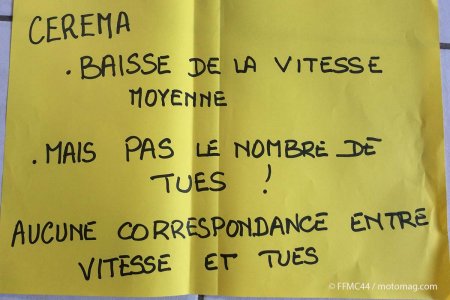 CEREMA
. BAISSE DE LA VITESSE
MOYENNE
. MAIS PAS LE NOMBRE DE
TUES !
AUCUNE CORRESPONDANCE ENTRE
VITESSE ET TUES
© FFMC44 / motomag.com